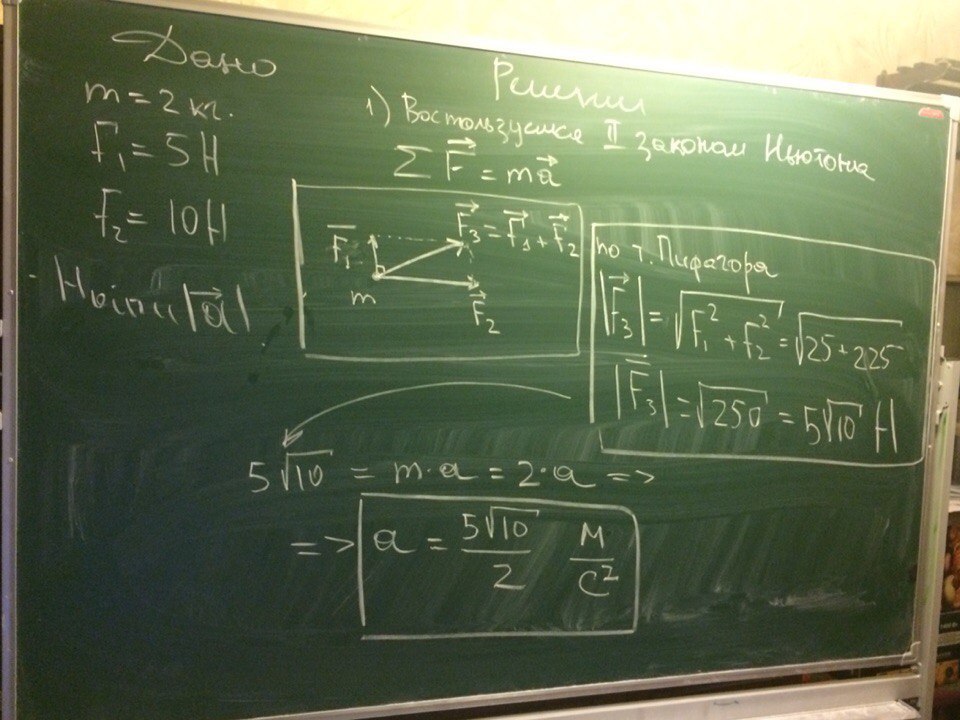 Дано
m = 2 кг.
F₁ = 5 Н
F₂ = 10 Н
Найти |a⃗|
Решении
1) Воспользуемся II законом Ньютона
∑ F⃗ = ma⃗
F̅₁
F⃗₃ = F⃗₁ + F⃗₂
m
F⃗₂
по т. Пифагора
|F⃗₃| = √(F₁² + F₂²) = √(25 + 225)
|F̅₃| = √250 = 5√10 Н
5√10 = m·a = 2·a =>
=> a = 5√10/2 М/С²